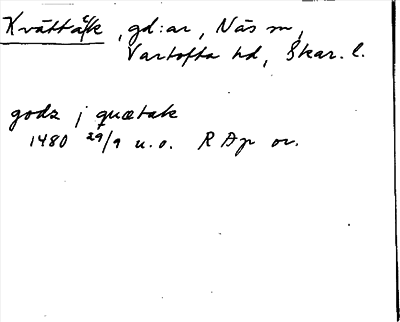 Kvättak, gd:ar, Näs sn,
Vartofta hd, Skar. l.
godz j quætak
1480 29/9 u.o. RAp or.